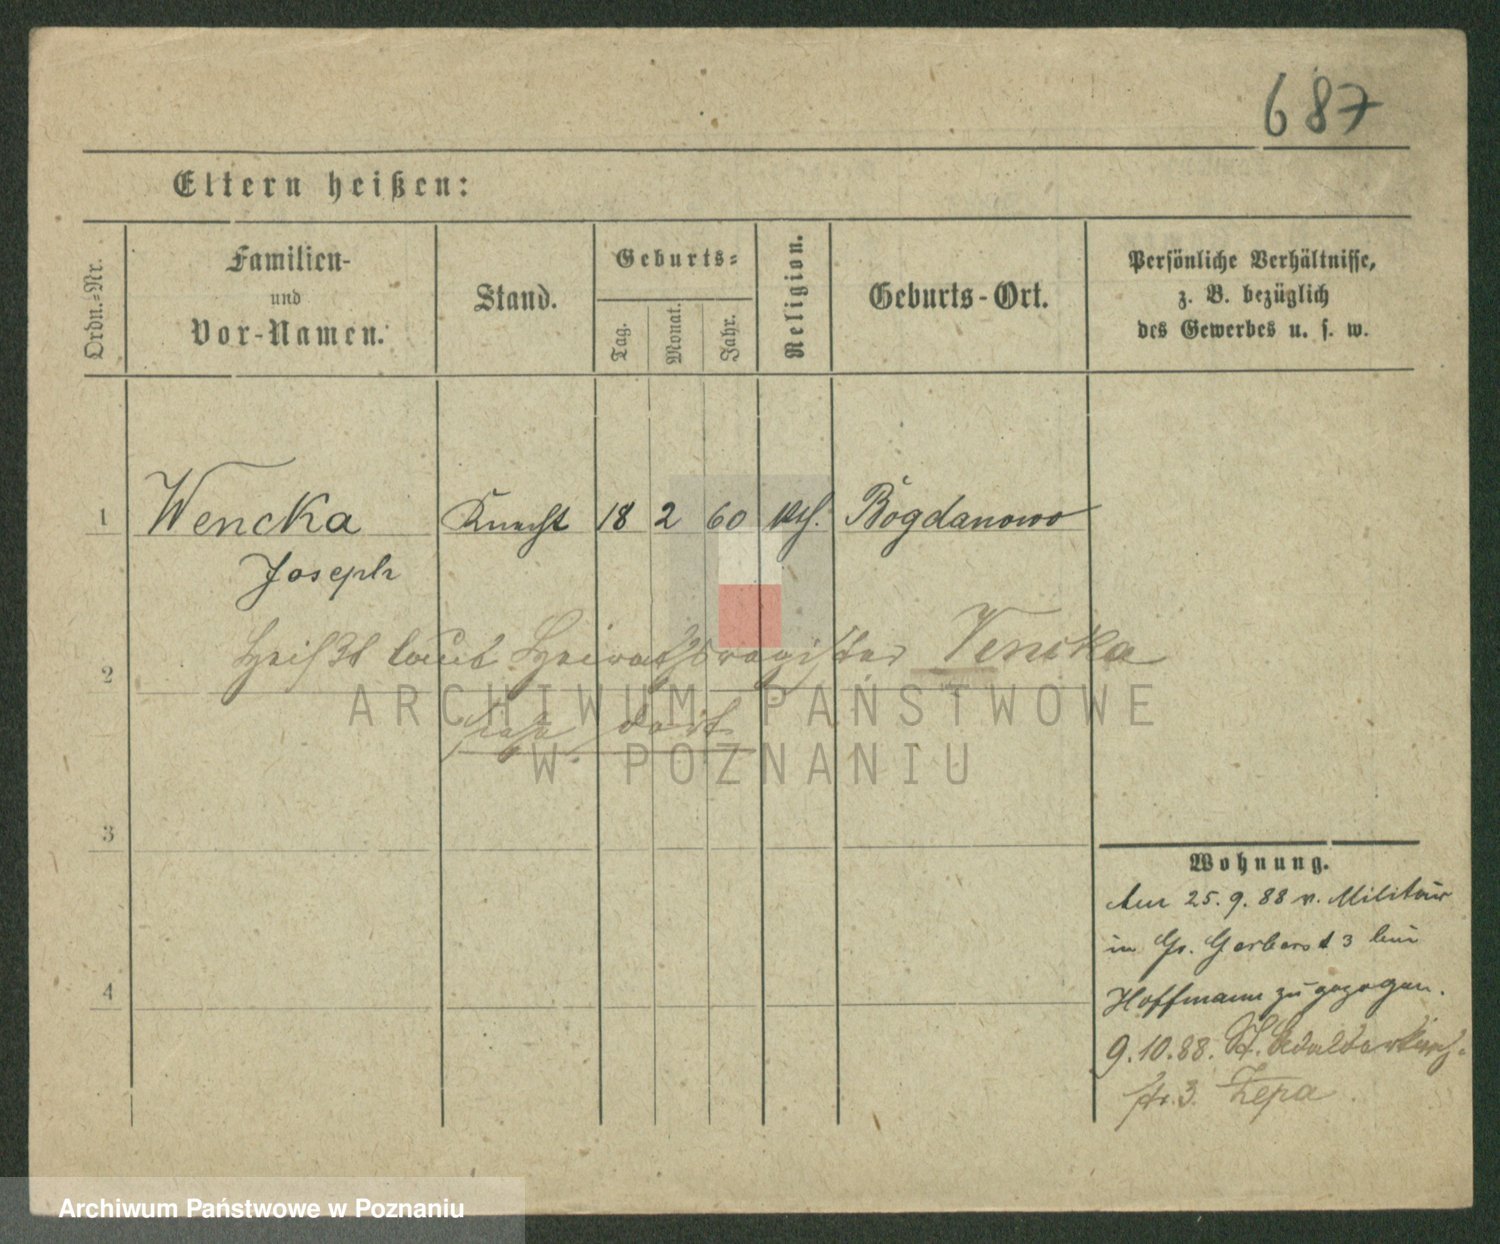 687
Eltern heißen:
Ordn.-Nr.
Familien-
und
Vor-Namen.
Stand.
Geburts-
Tag.
Monat.
Jahr.
Religion.
Geburts-Ort.
Persönliche Verhältnisse,
z. B. bezüglich
des Gewerbes u. s. w.
1 Wencka Knecht 18 2 60 kth. Bogdanowo
Joseph
Heißt laut Heirathsregister Vencka
2
siehe dort
ARCHIWUM PAŃSTWOWE
W POZNANIU
3
Wohnung.
Am 25.9.88 v. Militair
in Gr. Gerberst 3 bei
Hoffmann zugezogen.
4
9.10.88. St. Adalbertkirch-
str. 3. Zepa
Archiwum Państwowe w Poznaniu